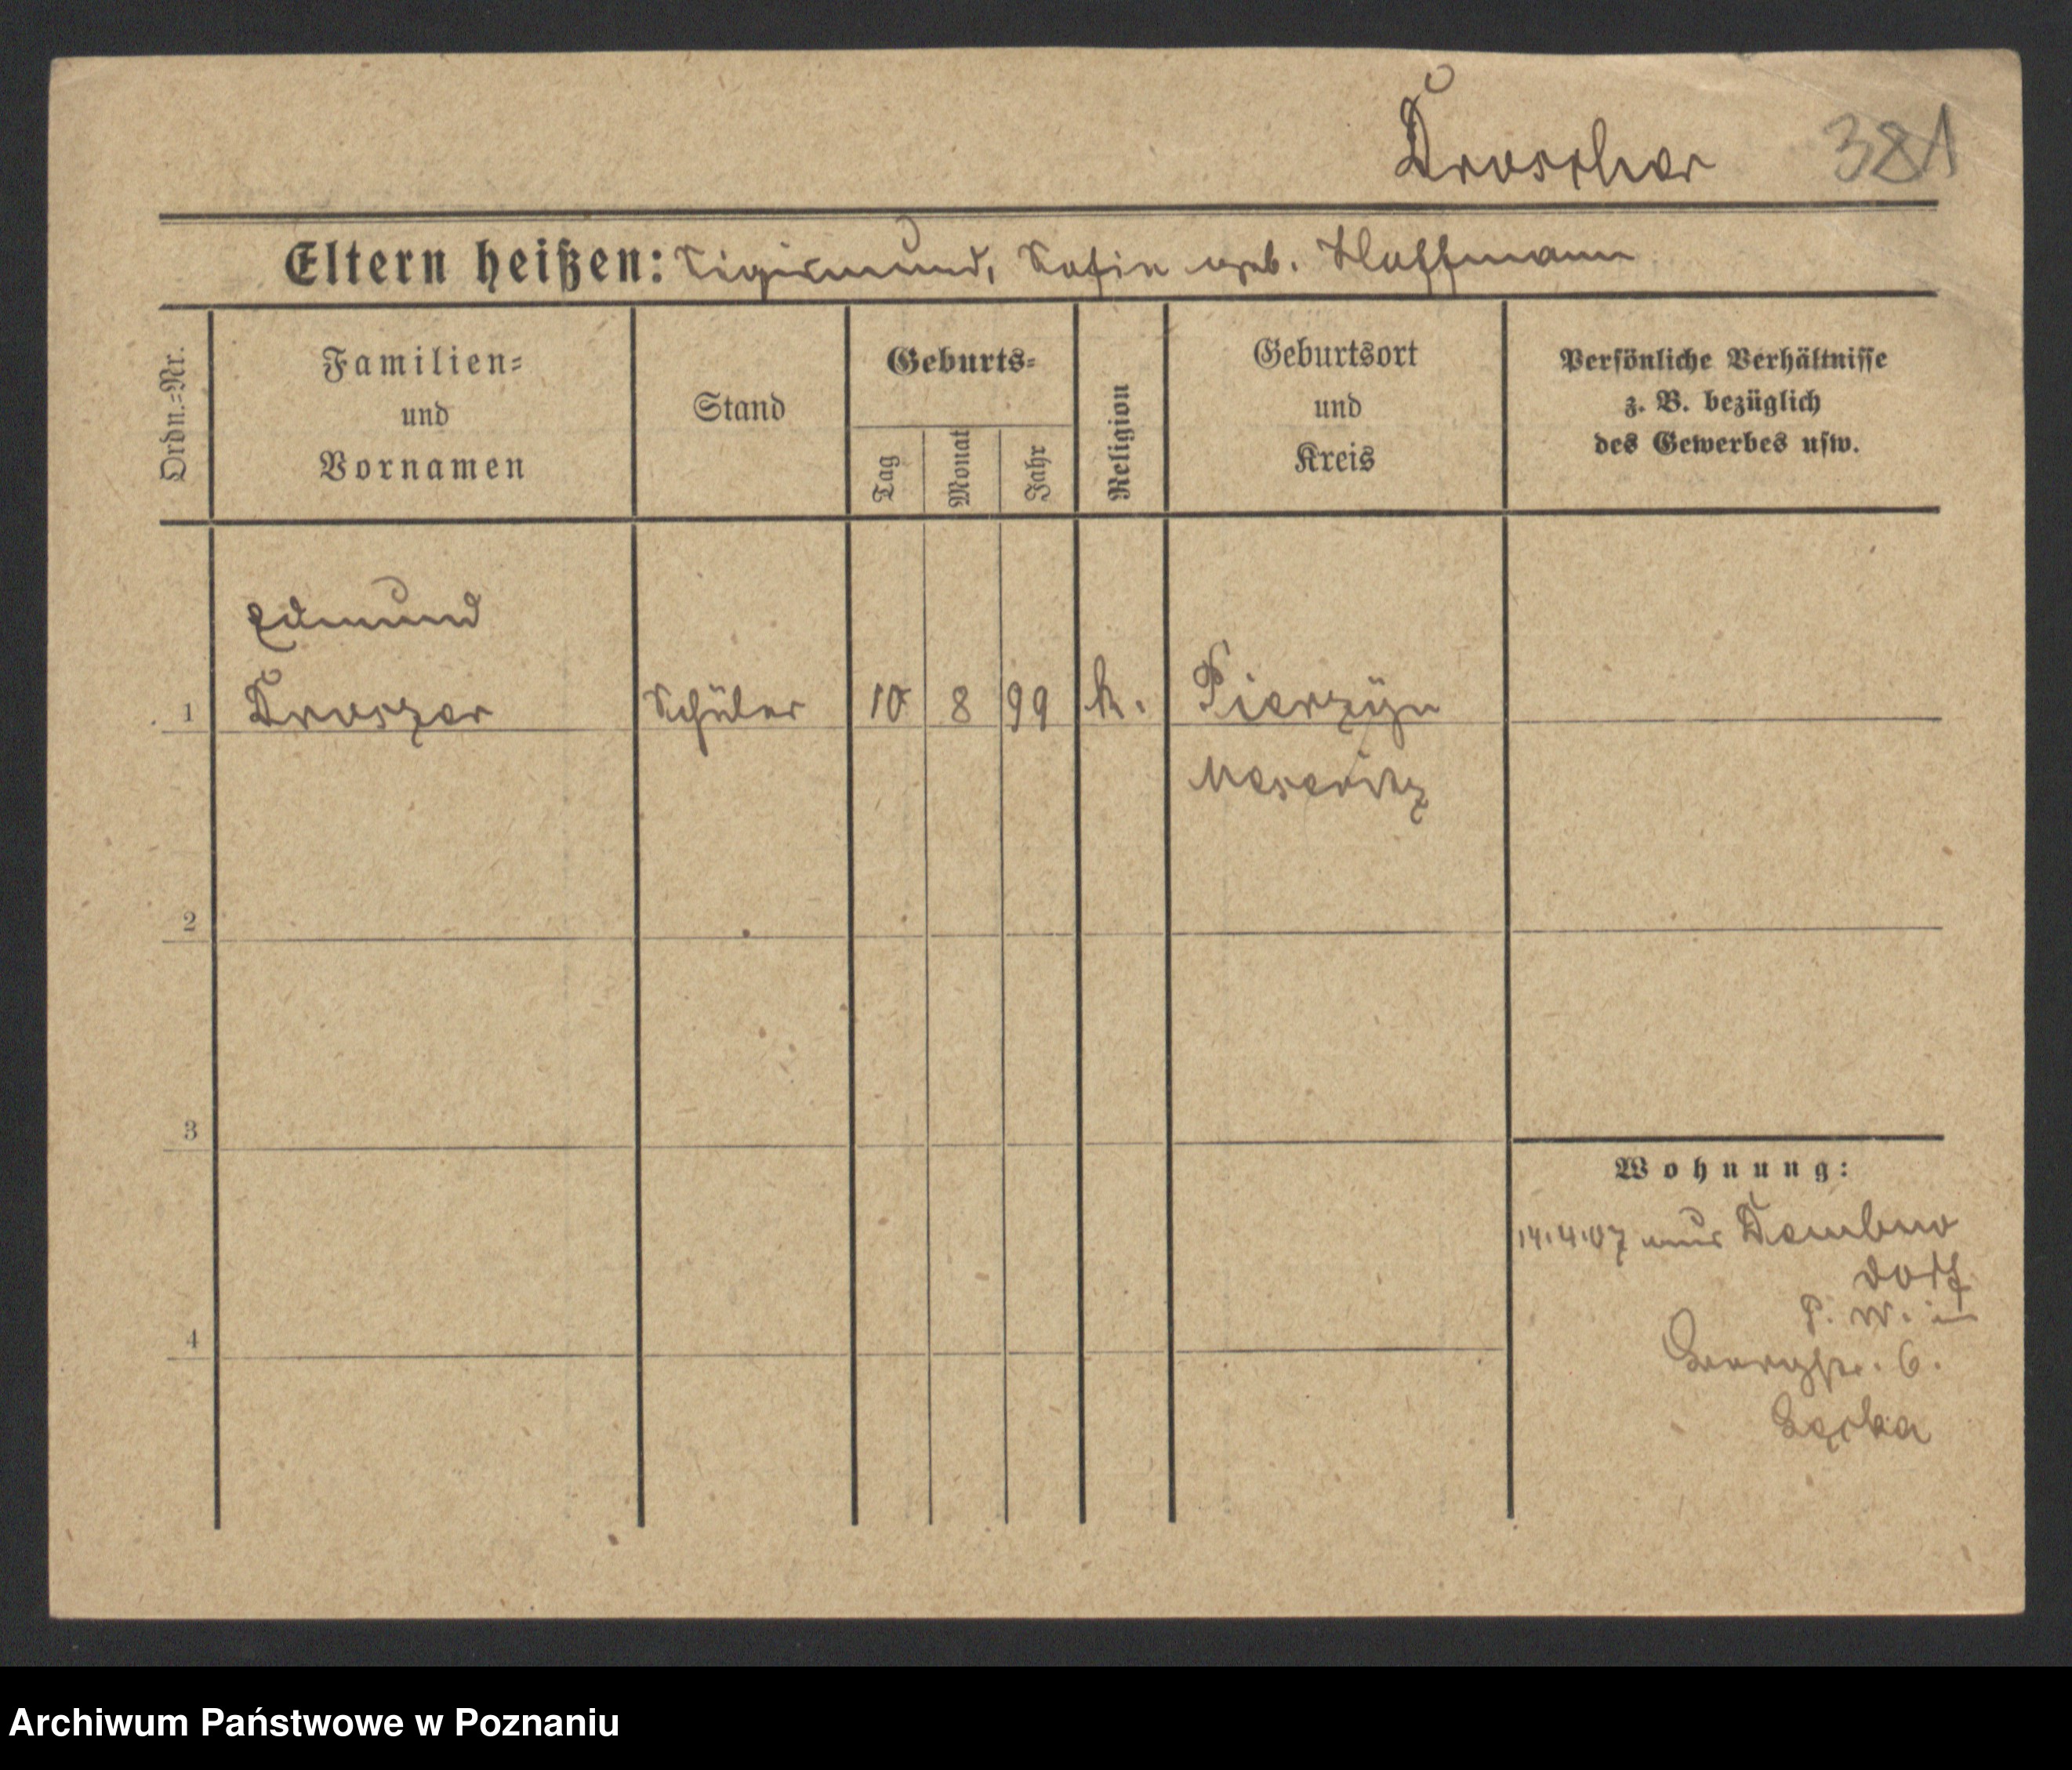 Droscher 381
Eltern heißen: Sigismund, Sofie geb. Hoffmann
Ordn.-Nr.
Familien-
und
Vornamen
Stand
Geburts-
Tag
Monat
Jahr
Religion
Geburtsort
und
Kreis
Persönliche Verhältnisse
z. B. bezüglich
des Gewerbes usw.
Edmund
1 Droszer Schüler 10 8 99 k. Pierzyn
Meseritz
2
3
4
Wohnung:
14.4.07 aus Dembno
Dorf
P. W. in
6.
Archiwum Państwowe w Poznaniu